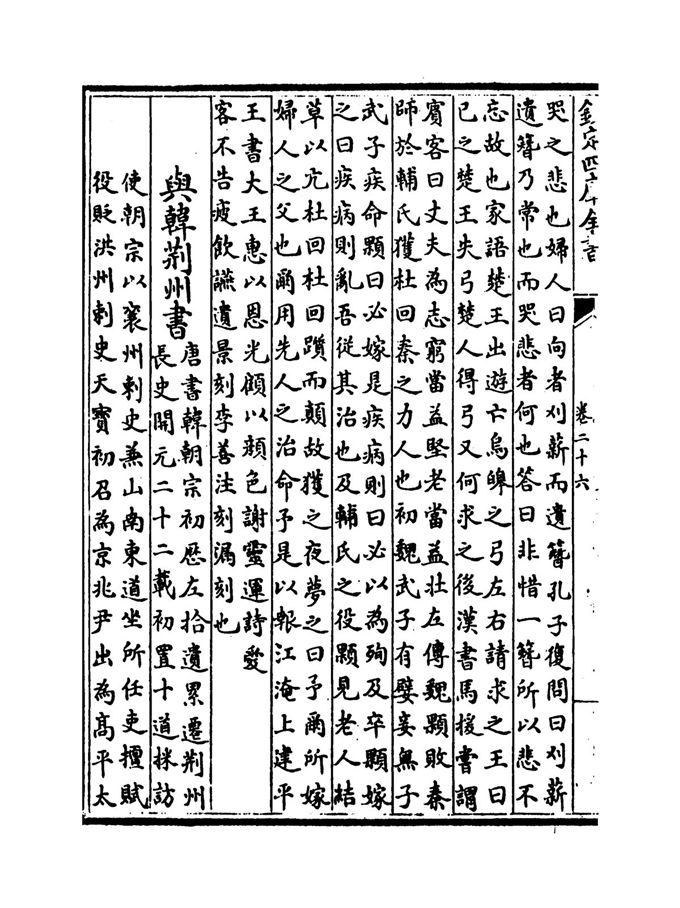 欽定四庫全書
卷二十六
哭之悲也婦人曰向者刈薪而遺簪孔子復問曰刈薪
遺簪乃常也而哭悲者何也答曰非惜一簪所以悲不
忘故也家語楚王出遊亡烏皥之弓左右請求之王曰
已之楚王失弓楚人得弓又何求之後漢書馬援嘗謂
賓客曰丈夫為志窮當益堅老當益壯左傳魏顆敗秦
師於輔氏獲杜回秦之力人也初魏武子有嬖妾無子
武子疾命顆曰必嫁是疾病則曰必以為殉及卒顆嫁
之曰疾病則亂吾從其治也及輔氏之役顆見老人結
草以亢杜回杜回躓而顛故獲之夜夢之曰予爾所嫁
婦人之父也爾用先人之治命予是以報江淹上建平
王書大王惠以恩光顧以顏色謝靈運詩愛
客不告疲飲讌遺景刻李善注刻漏刻也
與韓荊州書
唐書韓朝宗初歷左拾遺累遷荊州
長史開元二十二載初置十道採訪
使朝宗以襄州刺史兼山南東道坐所任吏擅賦
役貶洪州刺史天寶初召為京兆尹出為高平太